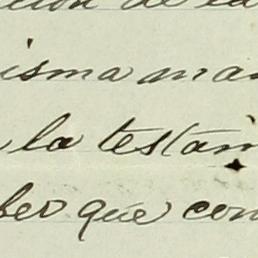 ción de la
isma man
la testam
ber que con